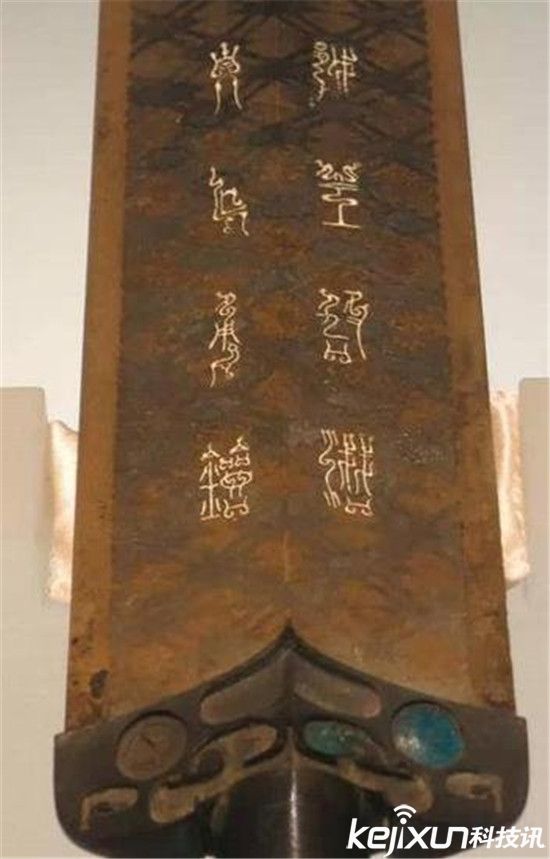 越王鳩淺
自乍用鐱
kejixun科技讯